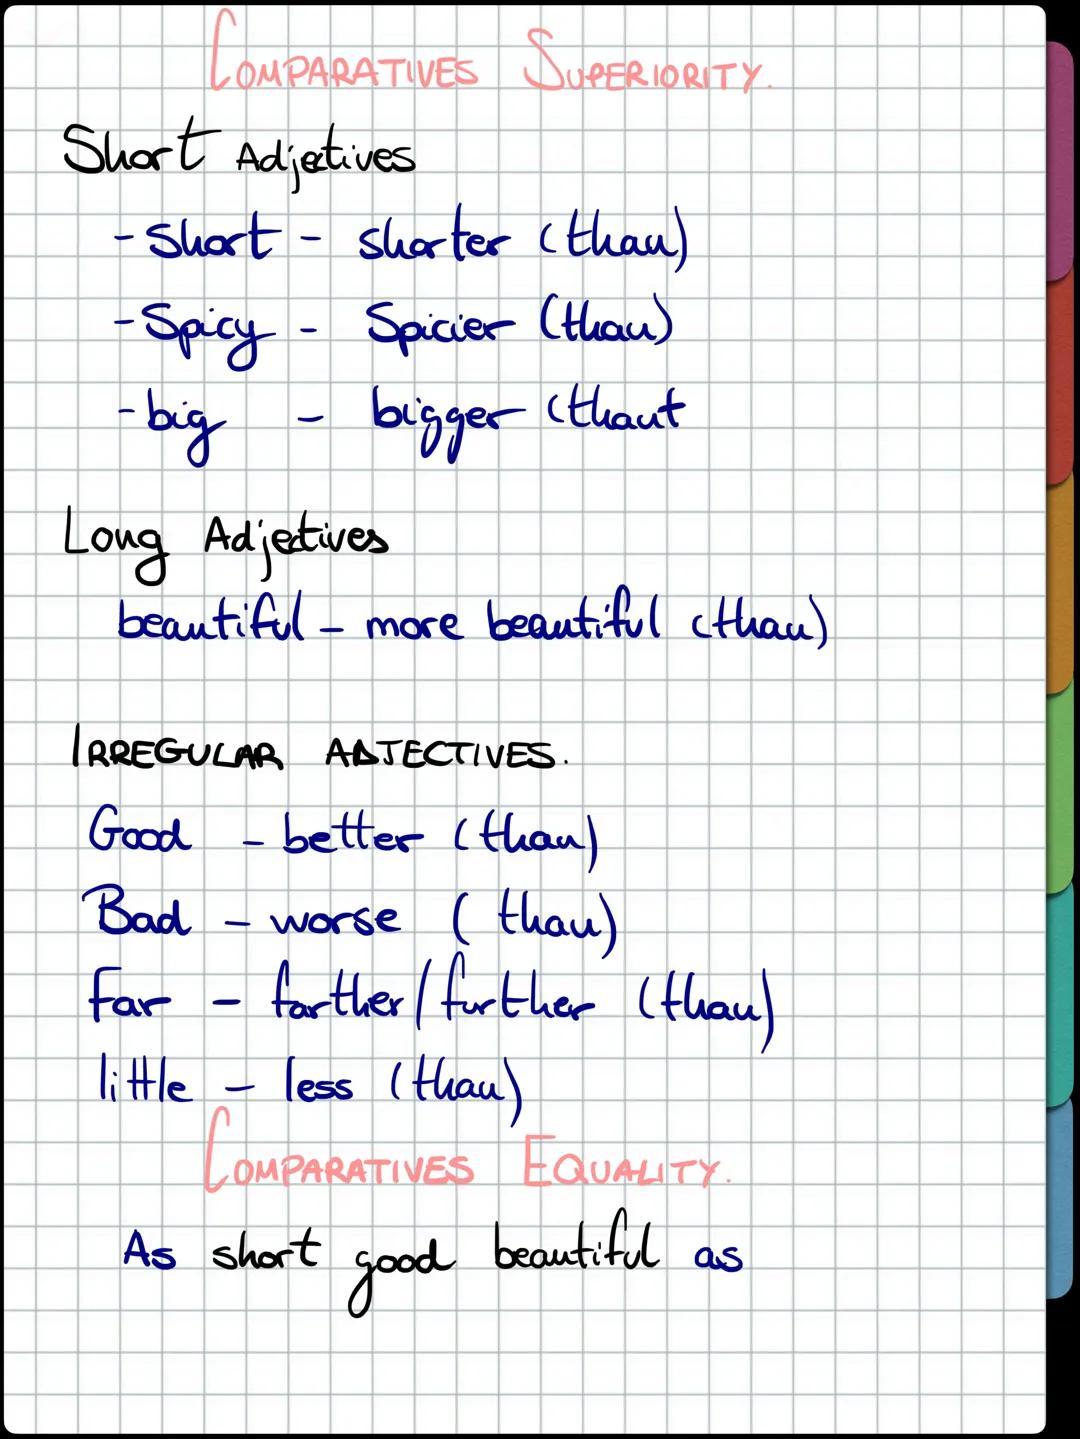 COMPARATIVES SUPERIORITY.
Short Adjectives
- Short - shorter (than)
- Spicy - Spicier (than)
- big - bigger (than
Long Adjectives
beautiful - more beautiful (than)
IRREGULAR ADJECTIVES.
Good - better (than)
Bad - worse (than)
Far - farther/further (than)
little - less (than)
COMPARATIVES EQUALITY.
As short good beautiful as